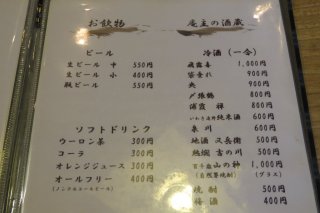 お飲物
ビール
生ビール 中 550円
生ビール 小 400円
瓶ビール 550円
ソフトドリンク
ウーロン茶 300円
コーラ 300円
オレンジジュース 300円
オールフリー 400円
(ノンアルコールビール)
庵主の酒蔵
冷酒 (一合)
飛露喜 1,000円
900円
900円
〆張鶴 800円
浦霞 禅 800円
純米酒 600円
泉川 600円
地酒 又兵衛 500円
熱燗 吉の川 500円
山の神 1,000円
(自然薯焼酎) (グラス)
焼酎 500円
梅酒 400円